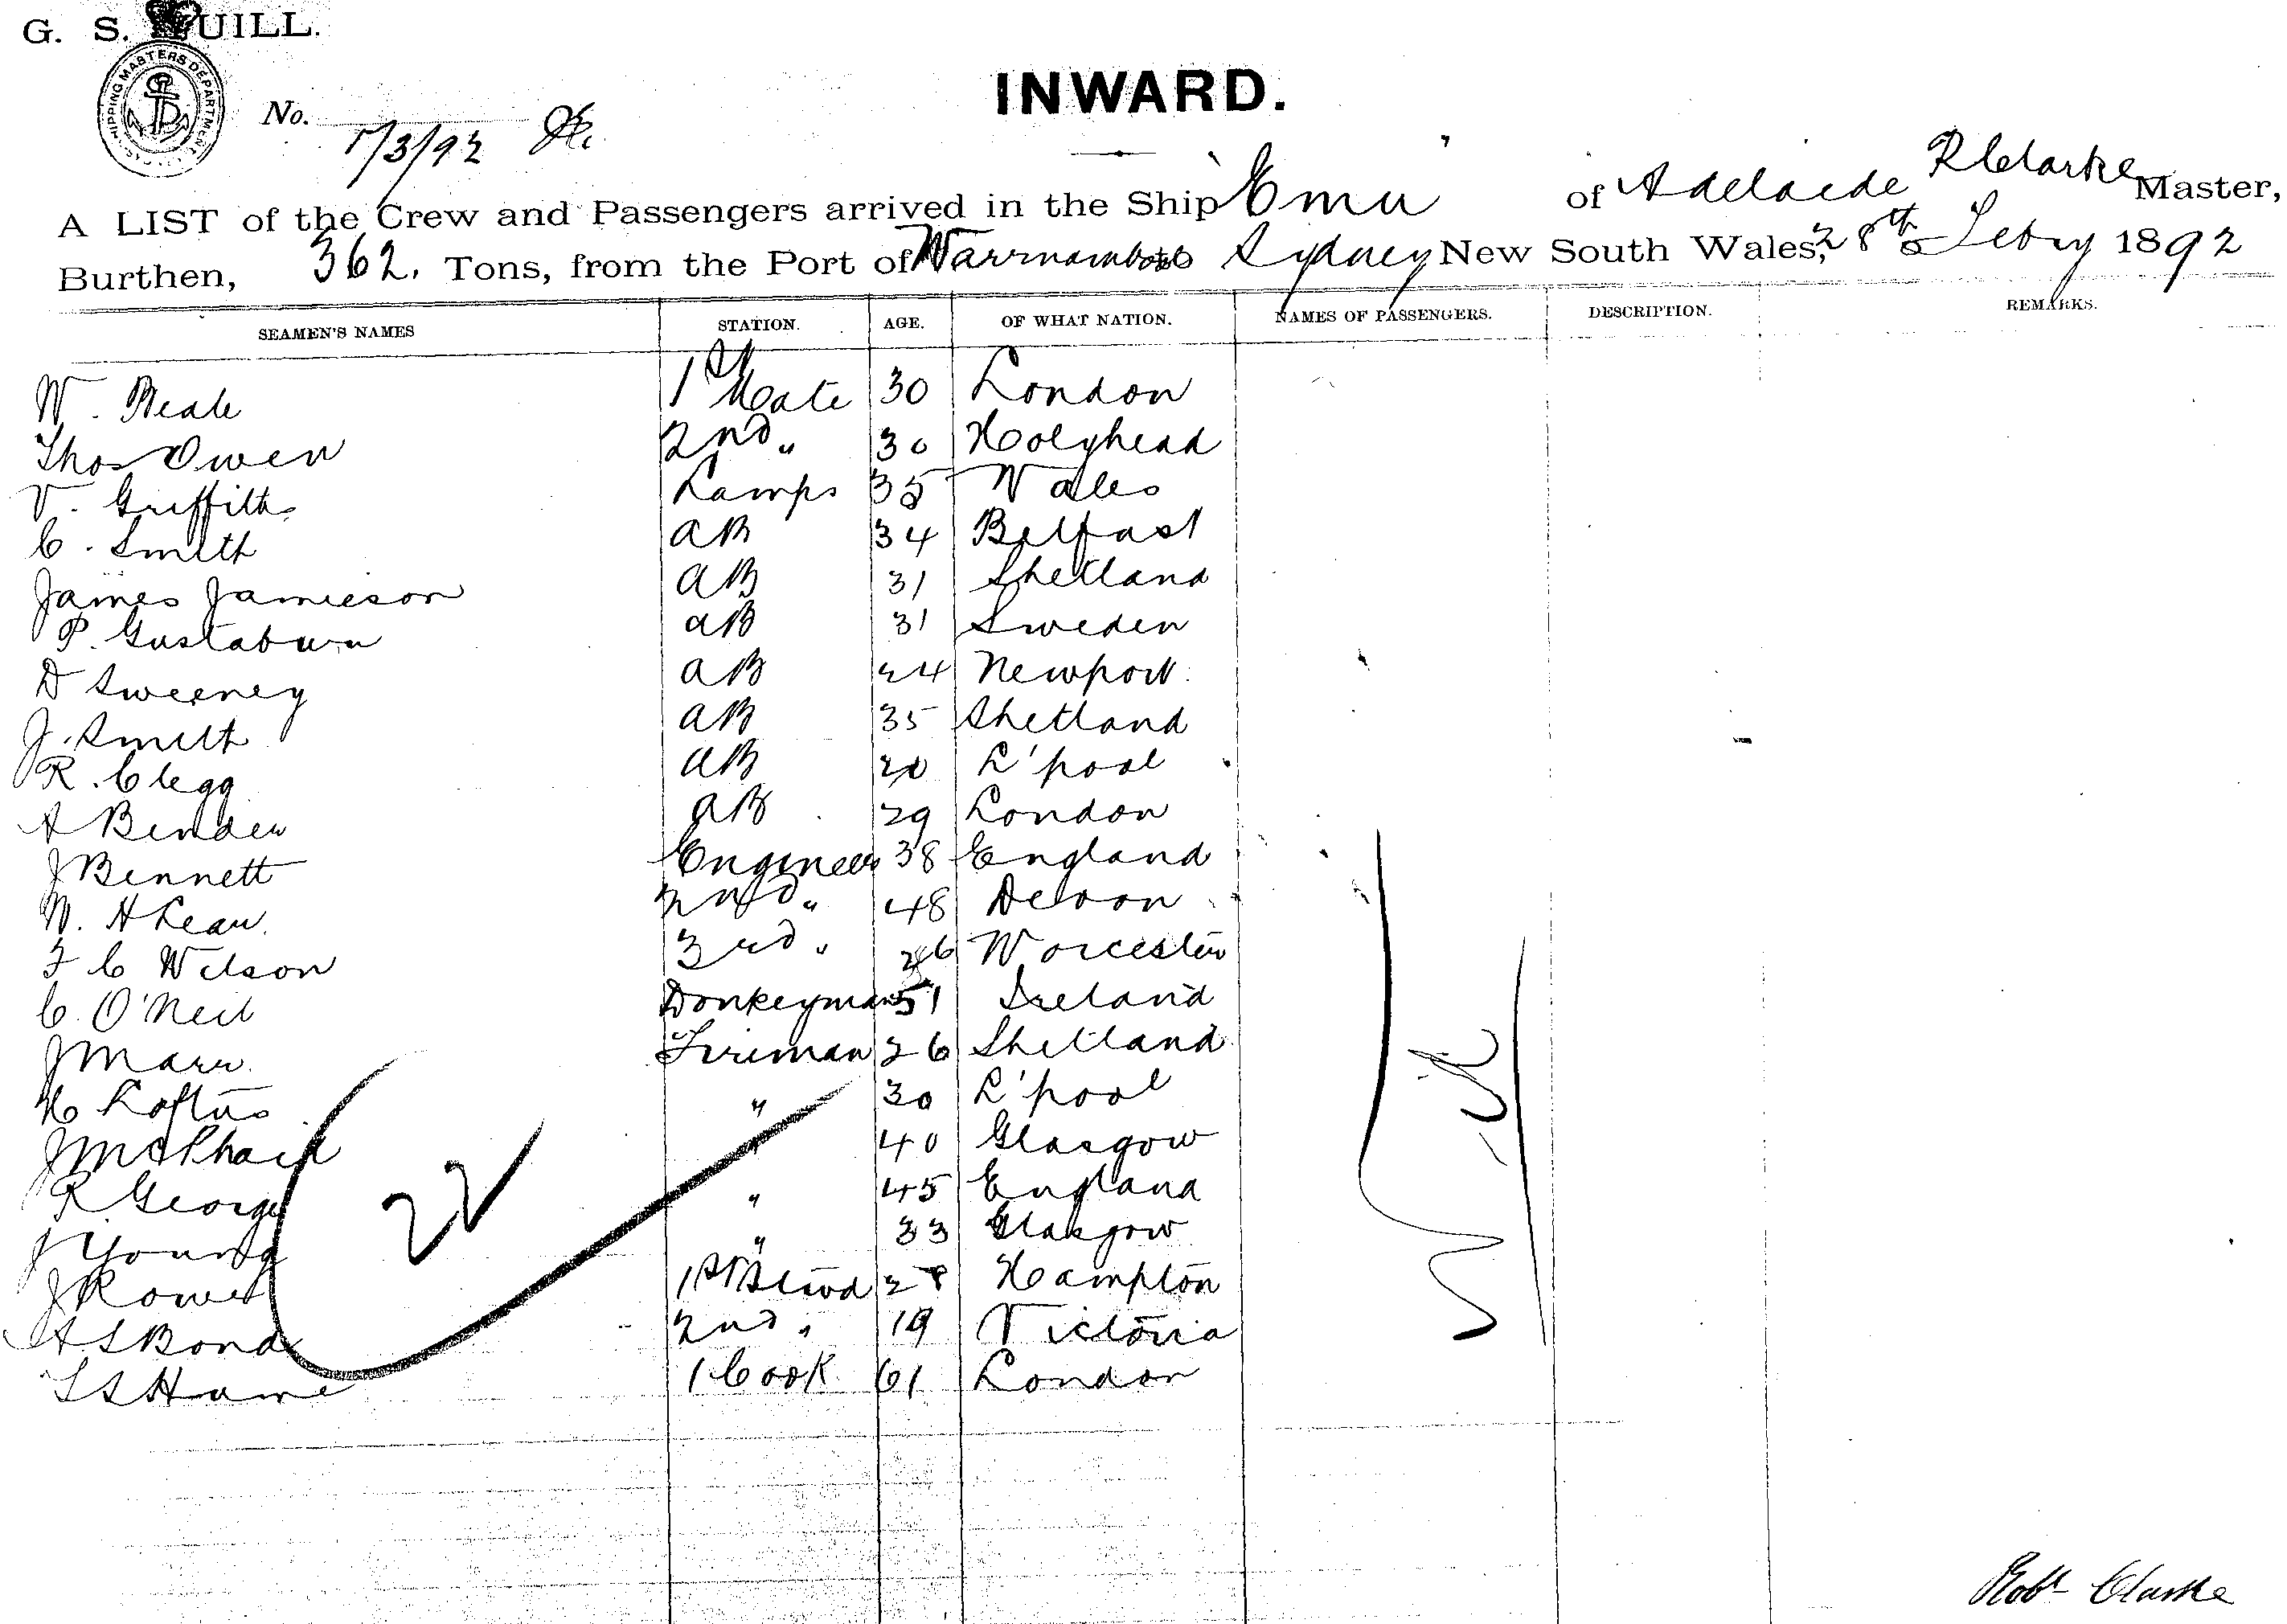 G. S. QUILL.
SHIPPING MASTERS DEPARTMENT
No. 1/3/92
INWARD.
A LIST of the Crew and Passengers arrived in the Ship "Emu" of Adelaide R Clarke Master,
Burthen, 362. Tons, from the Port of Warrnambool to Sydney New South Wales, 28th Feby 1892
SEAMEN'S NAMES STATION. AGE. OF WHAT NATION. NAMES OF PASSENGERS. DESCRIPTION. REMARKS.
W. 1st Mate 30 London
Thos Owen 2nd " 30 Holyhead
V. Griffiths Lamps 35 Wales
C. Smith AB 34 Belfast
James Jamieson AB 31 Shetland
P. AB 31 Sweden
D Sweeney AB 24 Newport
J. Smith AB 35 Shetland
R. Clegg AB 20 L'pool
A Binden AB 29 London
J Bennett Engineer 38 England
W. H Lean. 2nd " 48 Devon
F C Wilson 3rd " 26 Worcester
C. O'Neil Donkeyman 51 Ireland
J Marr. Fireman 26 Shetland
H Loftus " 30 L'pool
J McPhail " 40 Glasgow
R George " 45 England
J Young " 33 Glasgow
J Rowe 1st Stwd 28 Hampton
A S Bond 2nd " 19 Victoria
1 Cook 61 London
22
Robt Clarke